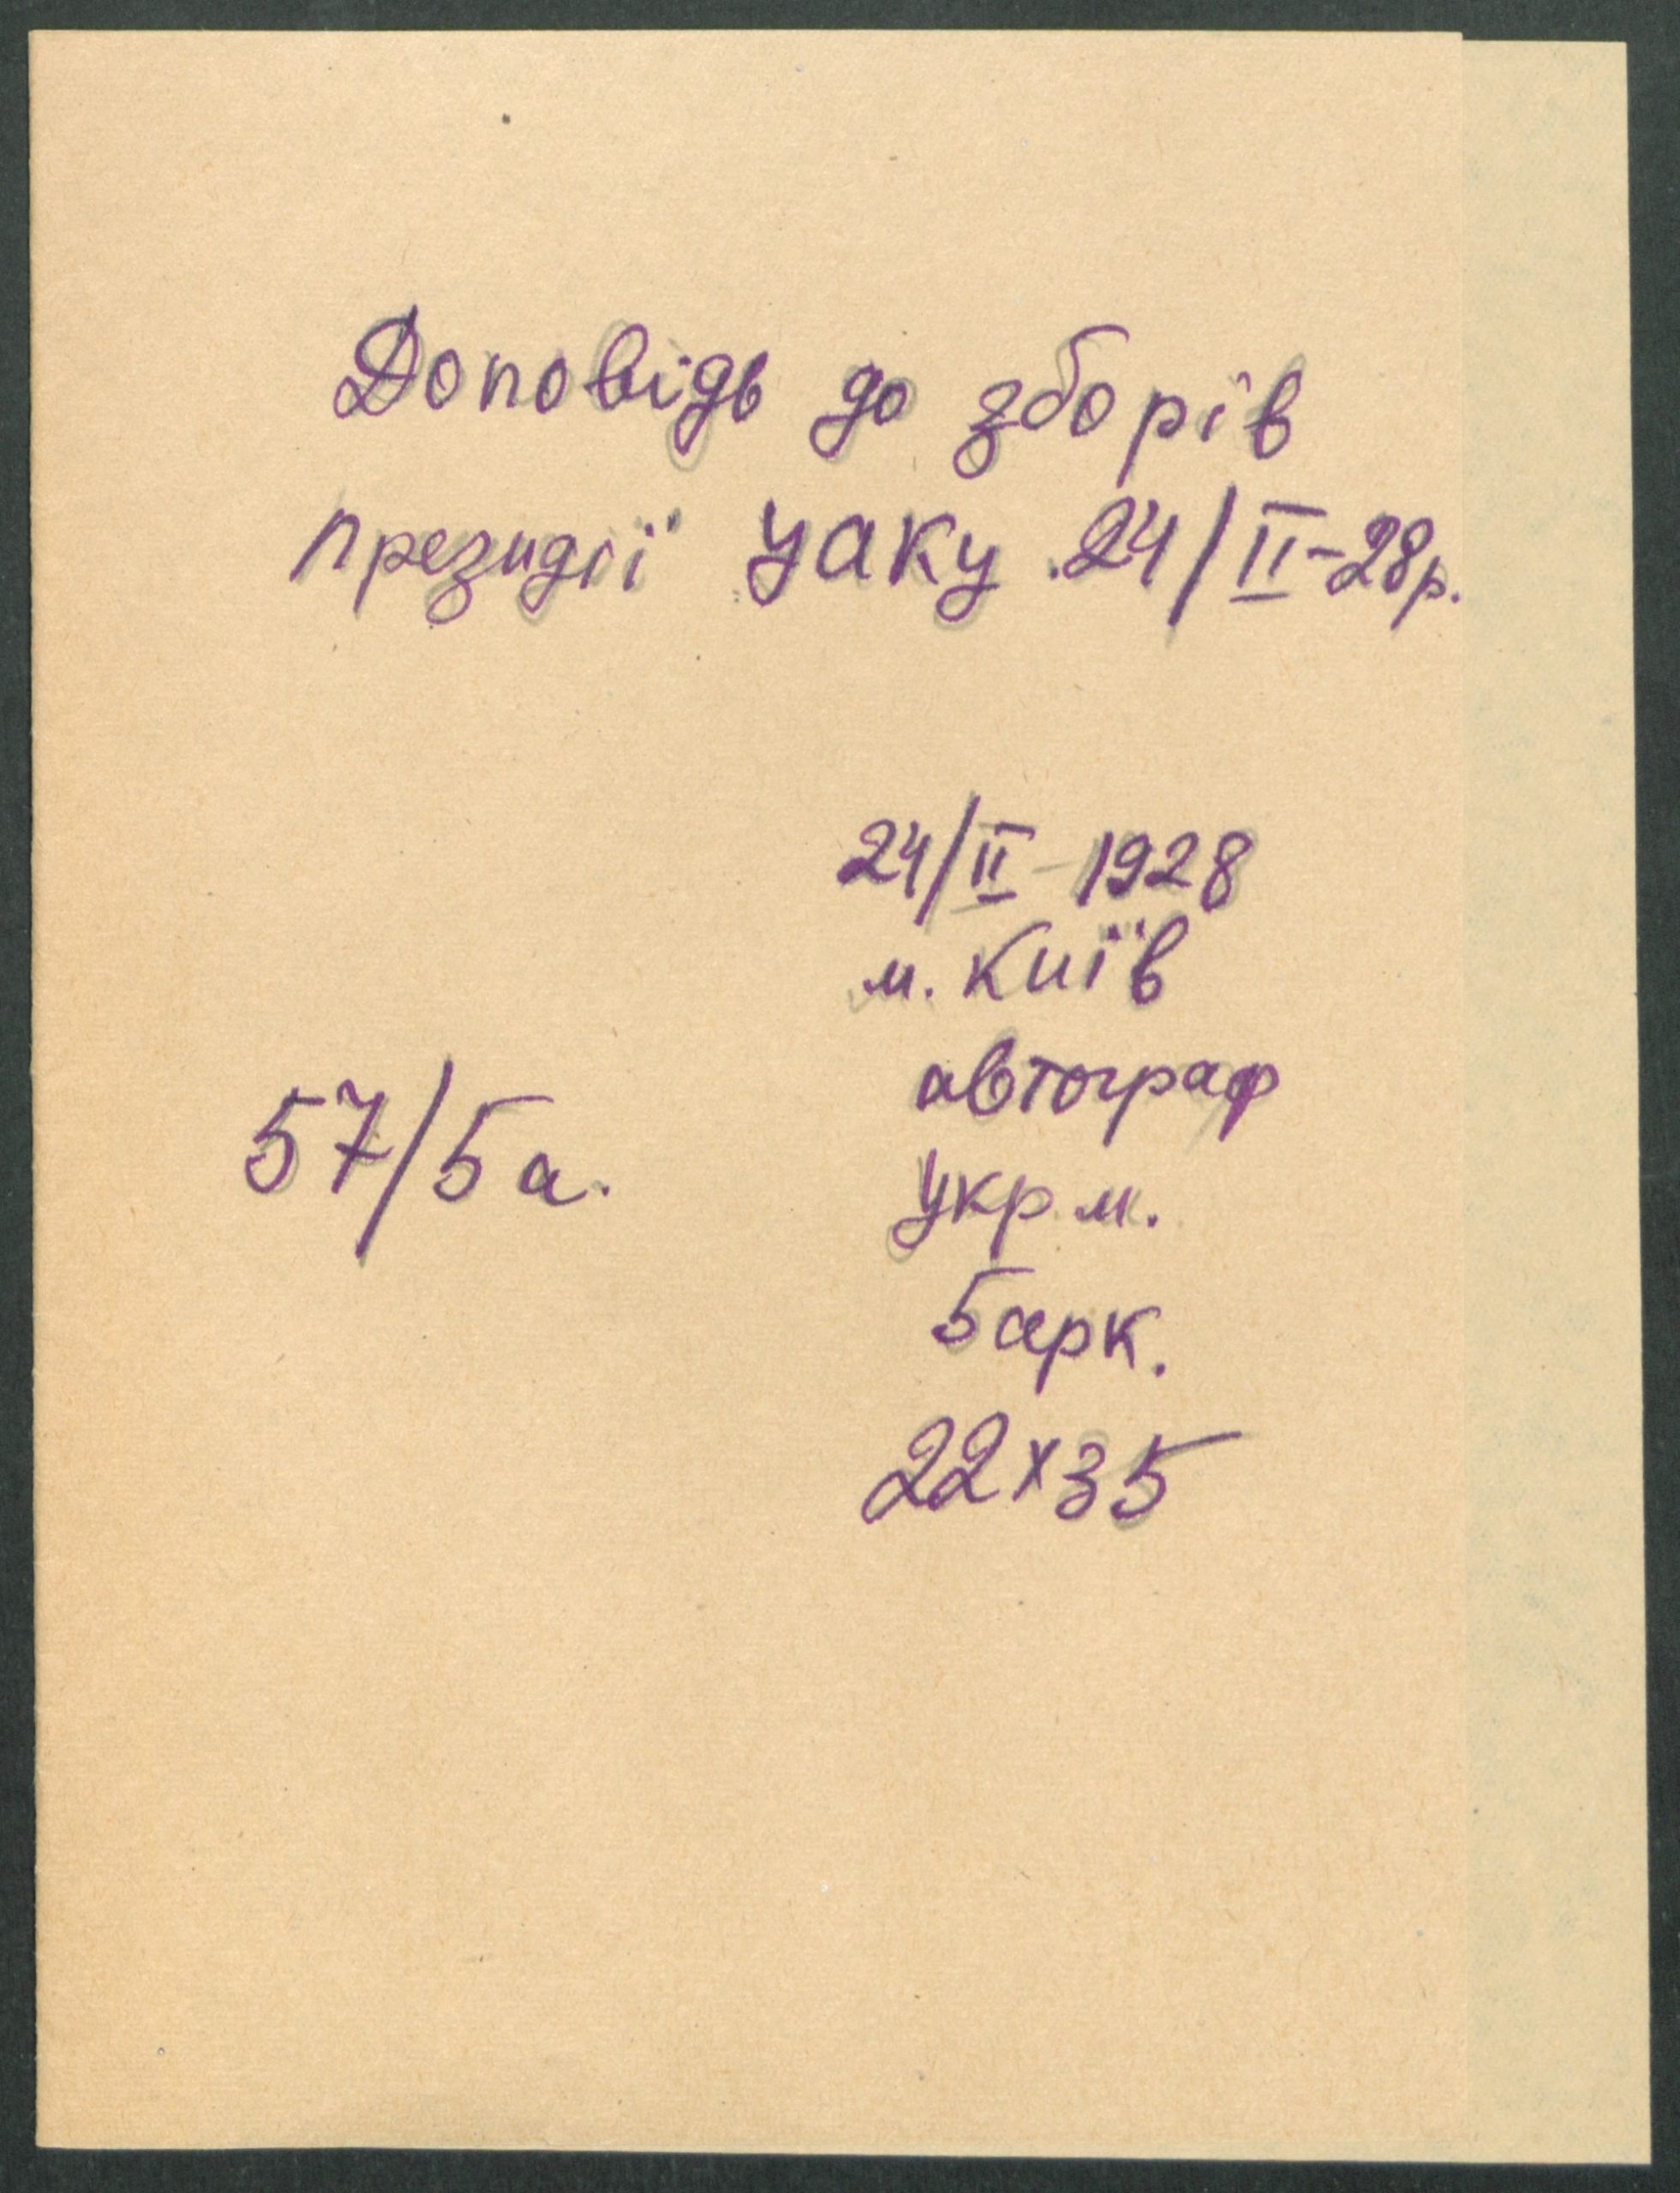 Доповідь до зборів
президії УАКу 24/II-28р.
24/II-1928
м. Київ
автограф
57/5а.
Укр. м.
5 арк.
22х35